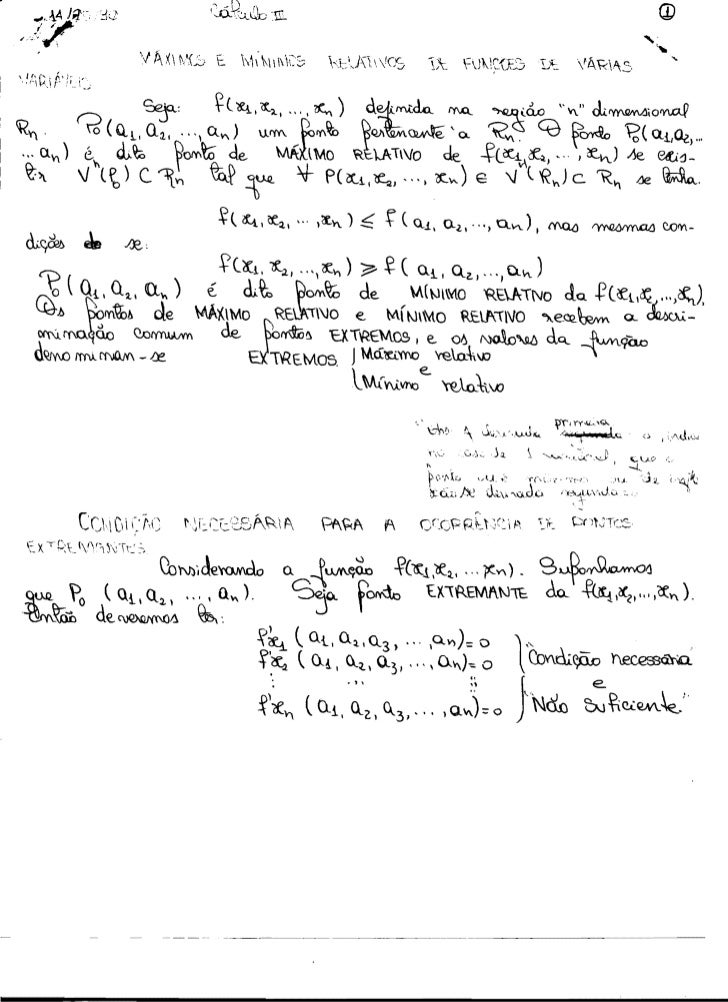 Cálculo III
1
MÁXIMOS E MÍNIMOS RELATIVOS DE FUNÇÕES DE VÁRIAS
VARIÁVEIS
Seja: f(x1, x2, ..., xn) definida na região "n" dimensional
Rn. Po(a1, a2, ..., an) um ponto pertencente a Rn. O ponto Po(a1, a2, ...
... an) é dito ponto de MÁXIMO RELATIVO de f(x1, x2, ..., xn) se exis-
tir Vn(Po) C Rn tal que ∀ P(x1, x2, ..., xn) ∈ Vn(Rn) C Rn se tenha.
f(x1, x2, ..., xn) ≤ f(a1, a2, ..., an), nas mesmas con-
dições se:
f(x1, x2, ..., xn) ≥ f(a1, a2, ..., an)
Po(a1, a2, an) é dito ponto de MÍNIMO RELATIVO da f(x1, x2, ..., xn).
Os pontos de MÁXIMO RELATIVO e MÍNIMO RELATIVO recebem a descri-
minação comum de pontos EXTREMOS, e os valores da função
denominan-se EXTREMOS Máximo relativo
e
Mínimo relativo
primeira
ponto
derivada segunda
CONDIÇÃO NECESSÁRIA PARA A OCORRÊNCIA DE PONTOS
EXTREMANTES
Considerando a função f(x1, x2, ... xn). Suponhamos
que Po (a1, a2, ..., an). Seja ponto EXTREMANTE da f(x1, x2, ..., xn).
Então deveremos ter:
f'x1 (a1, a2, a3, ..., an)=0
f'x2 (a1, a2, a3, ..., an)=0 "Condição necessária
⋮ ... ⋮ e
f'xn (a1, a2, a3, ..., an)=0 Não suficiente"